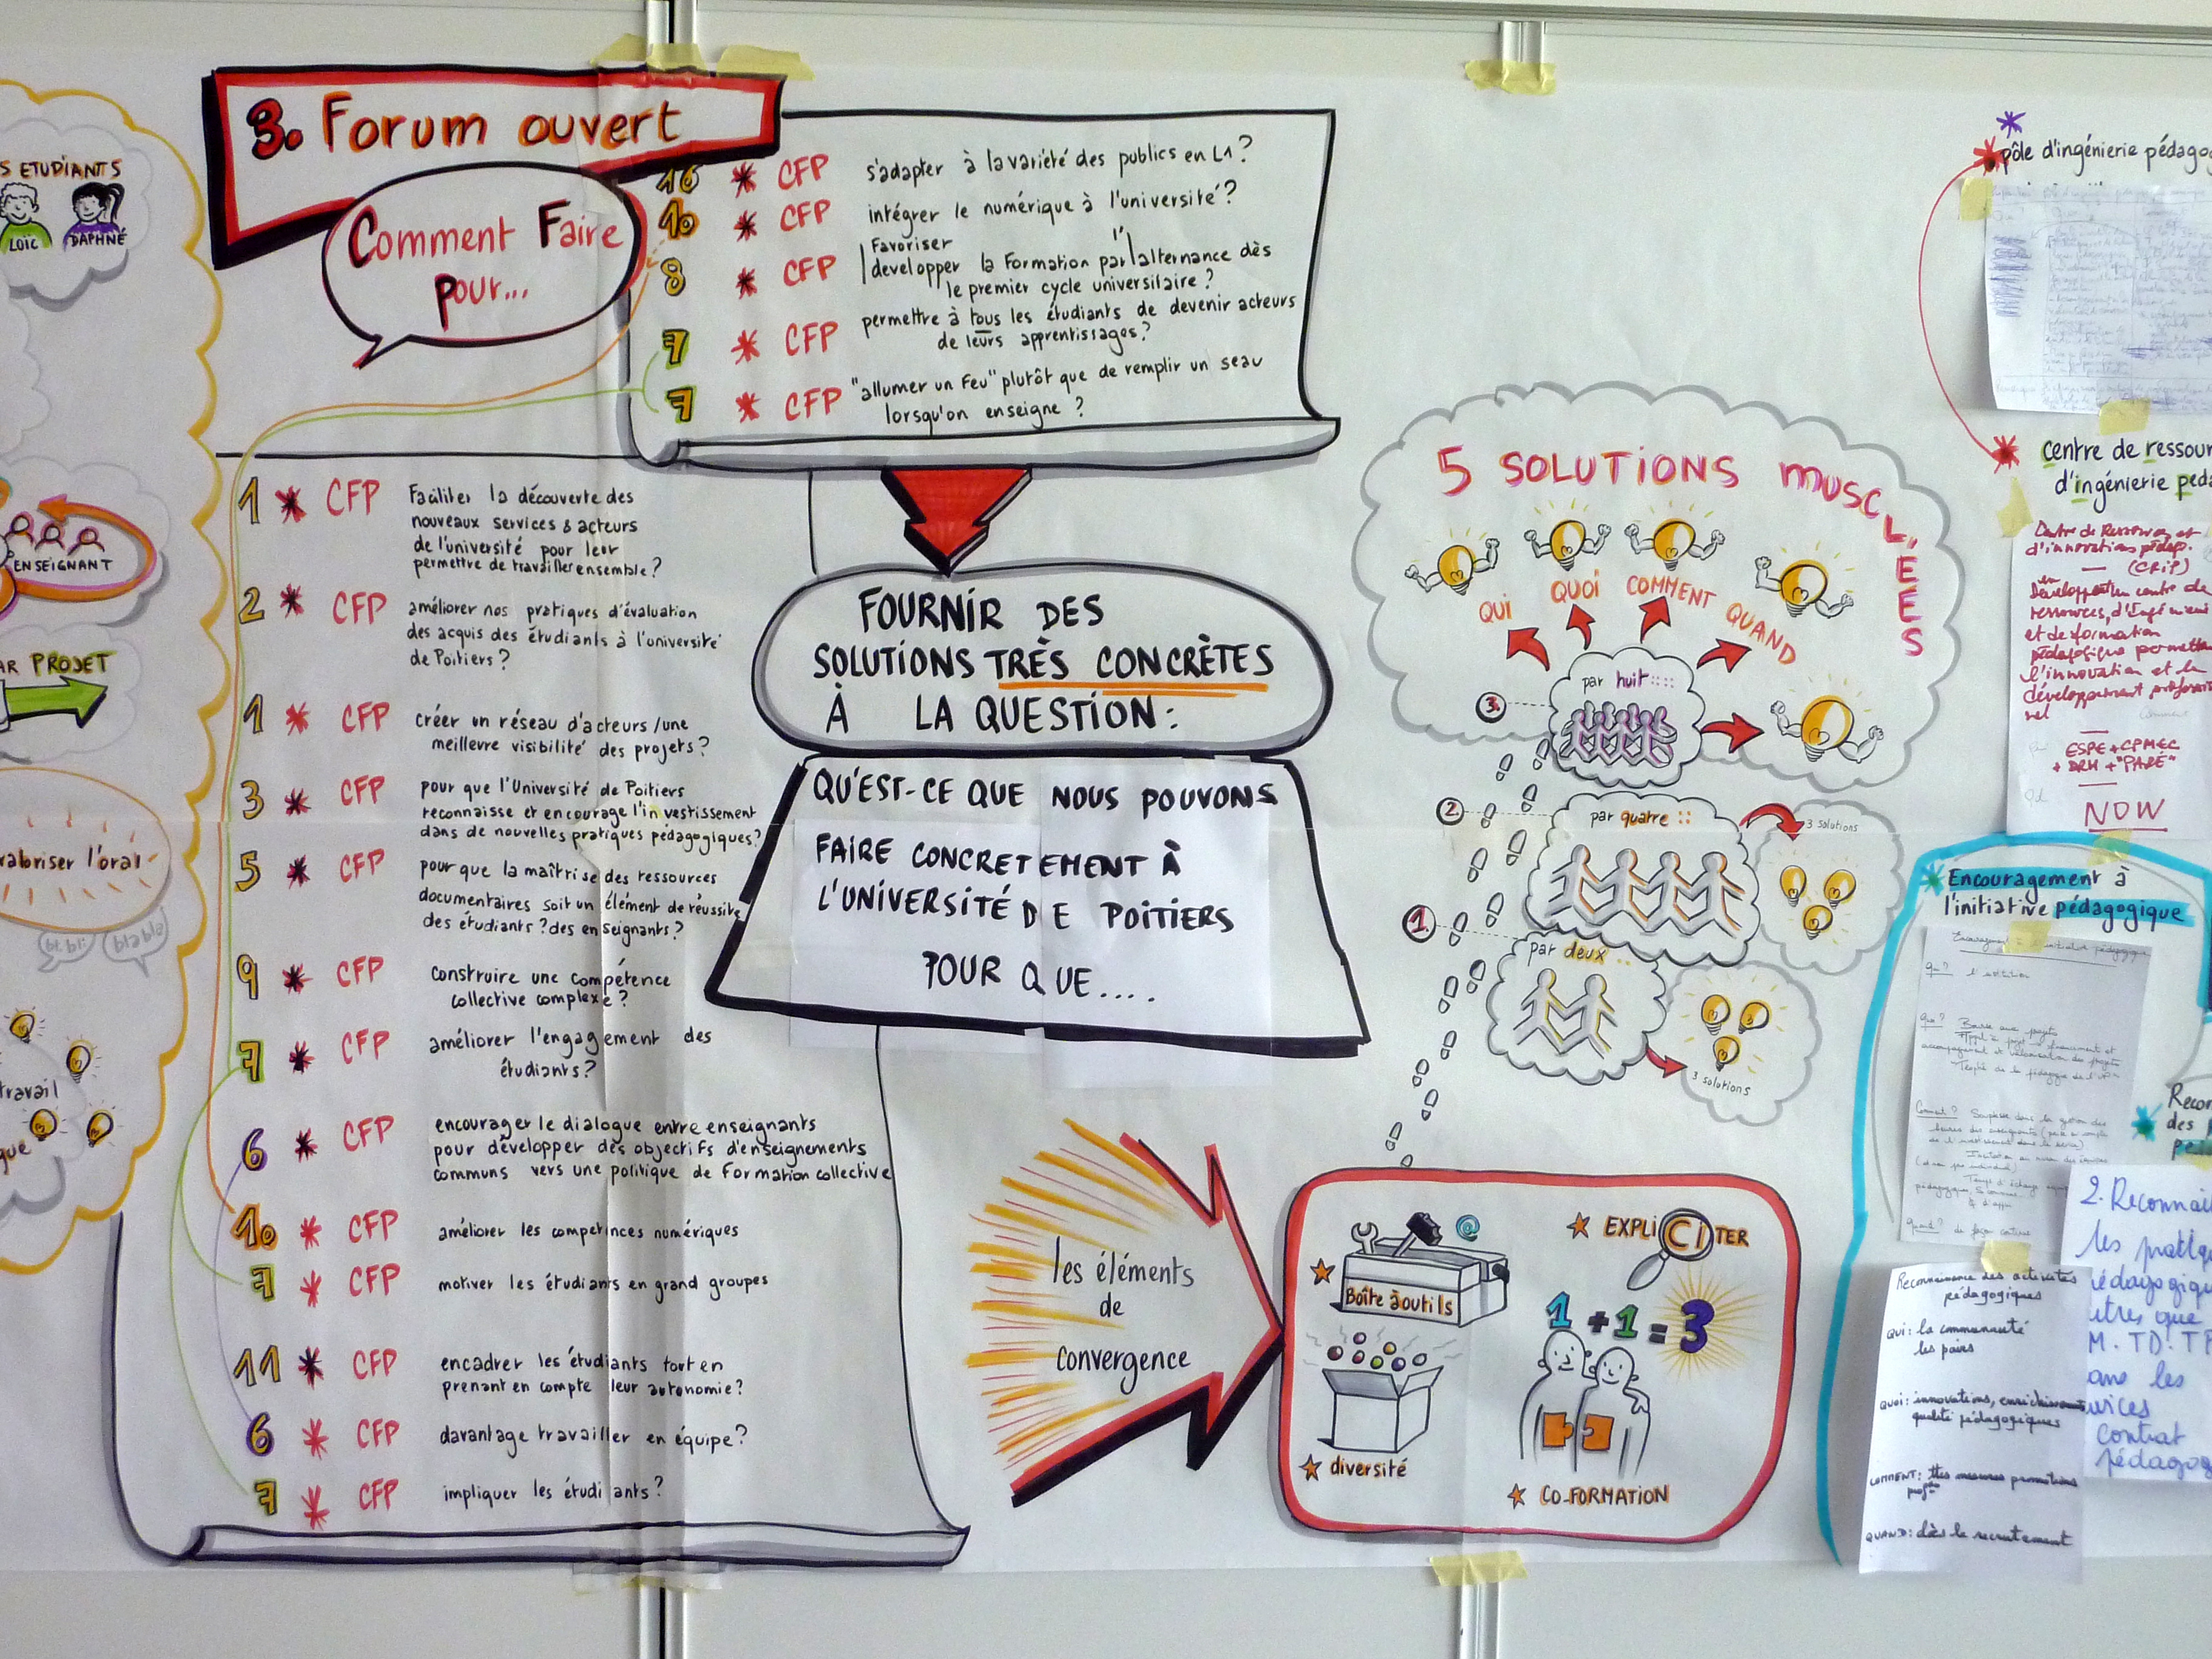 S ETUDIANTS
LOÏC DAPHNÉ
ENSEIGNANT
AR PROJET
valoriser l'oral
bli bli blabla
travail
que
3. Forum ouvert
Comment Faire
pour...
16 * CFP s'adapter à la variété des publics en L1?
10 * CFP intégrer le numérique à l'université?
8 * CFP Favoriser
developper la Formation par l'alternance dès
le premier cycle universitaire?
7 * CFP permettre à tous les étudiants de devenir acteurs
de leurs apprentissages?
7 * CFP "allumer un Feu" plutôt que de remplir un seau
lorsqu'on enseigne ?
1 * CFP Faciliter la découverte des
nouveaux services & acteurs
de l'université pour leur
permettre de travailler ensemble?
2 * CFP améliorer nos pratiques d'évaluation
des acquis des étudiants à l'université
de Poitiers ?
1 * CFP créer un réseau d'acteurs /une
meilleure visibilité des projets?
3 * CFP pour que l'Université de Poitiers
reconnaisse et encourage l'investissement
dans de nouvelles pratiques pédagogiques?
5 * CFP pour que la maîtrise des ressources
documentaires soit un élément de réussite
des étudiants? des enseignants?
9 * CFP construire une compétence
collective complexe?
7 * CFP améliorer l'engagement des
étudiants?
6 * CFP encourager le dialogue entre enseignants
pour développer des objectifs d'enseignements
communs vers une politique de Formation collective
10 * CFP améliorer les compétences numériques
7 * CFP motiver les étudiants en grand groupes
11 * CFP encadrer les étudiants tout en
prenant en compte leur autonomie?
6 * CFP davantage travailler en équipe?
7 * CFP impliquer les étudiants?
FOURNIR DES
SOLUTIONS TRÈS CONCRÈTES
À LA QUESTION:
QU'EST-CE QUE NOUS POUVONS
FAIRE CONCRETEMENT À
L'UNIVERSITÉ DE POITIERS
POUR QUE....
les éléments
de
convergence
Boîte à outils
@
EXPLICITER
1+1=3
diversité
CO-FORMATION
5 SOLUTIONS MUSCLÉES
QUI QUOI COMMENT QUAND
3. par huit ::::
2. par quatre ::
3 solutions
1. par deux ..
3 solutions
pôle d'ingénierie pédagog
centre de ressour
d'ingénierie péda
Centre de Ressources et
d'innovations pédap.
(CRIP)
développement un centre de
ressources, d'Ingénieri
et de formation
pédagogique permetta
l'innovation et le
développement profession
nel
ESPE + CPMEC
+ DRH + "PARE"
NOW
Encouragement à
l'initiative pédagogique
Encouragement à l'initiative pédagogique
Qui? l'institution
Quoi? Bourse aux projets
Comment?
Quand? de façon continue
Recon
des p
péd
Reconnaissance des activités
pédagogiques
QUI: la communauté
les pairs
QUOI: innovations, enrichissement
qualité pédagogiques
COMMENT: mesures promotions
QUAND: dès le recrutement
2. Reconnai
les pratiqu
édagogiqu
utres que
M. TD. TP
ans les
vices
contrat
pédagog